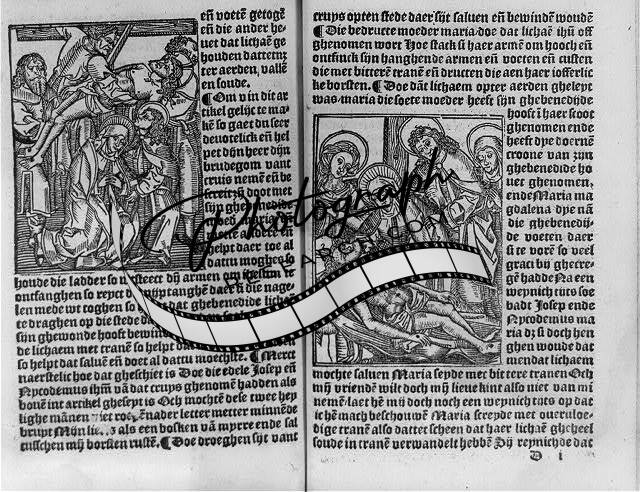 eñ voetē getogē
eñ die ander he-
uet dat lichaē ge
houden dattettz
ter aerden, vallē
en soude.
¶ Om v in dit ar
tikel gelijc te ma-
kē so gaet du seer
deuotelick eñ hel
pet dijn heer dijn
brudegom vant
cruys nemē eñ be
doot met
sijn ghebenedide
helpt daer toe al
dattu moghes
houde die ladder so
ontfanghen so reyct
len mede wt toghen so
te draghen op die stede
sijn ghewonde hooft bewin
de lichaem met tranē so helpt
so helpt dat saluen eñ doet al dattu moechste. ¶ Merct
naerstelic hoe dat gheschiet is Doe die edele Josep eñ
Nycodemus ihm̄ vā dat cruys ghenomē hadden als
bouē int artikel ghesept is Och mochtē dese twee hey
lighe mānen nader letter metter minnē de
bruyt Mijn als een bosken vā myrre ende sal
tusschen mij borsten rustē. ¶ Doe droeghen sijt vant
cruys opten stede daer sijt saluen eñ bewindē woudē
¶ Die bedructe moeder maria doe dat lichaē ihū off
ghenomen wort Hoe stack si haer armē om hooch eñ
ontfinck sijn hanghende armen eñ voeten eñ custen
die met bitterē tranē eñ drucken die aen haer iofferlic
ke borsten. ¶ Doe dā lichaem opter aerden gheleyt
was maria die soete moeder heeft sijn ghebenedijde
hooft ī haer scoot
ghenomen ende
heeft dye doernē
croone van zijn
ghebenedide ho
uet ghenomen,
ende Maria ma
gdalena dye nā
die ghebenedij-
de voeten daer
si te vorē so veel
graci bij ghecre-
gē hadde Na een
weynich tijts soe
badt Josep ende
Nycodemus ma
ria dz si doch hen
ghen woude dat
men dat lichaem
mochte saluen Maria seyde met bittere tranen Och
mij vriendē wilt doch mij lieue kint also niet van mi
nemē laet hē mi doch noch een weynich tijts op dat
ic hē mach beschouwē Maria screyde met oueruloe-
dige tranē also dattet scheen dat haer lichaē gheheel
soude in tranē verwandelt hebbē Sij reynichde dat
D i
Photograph